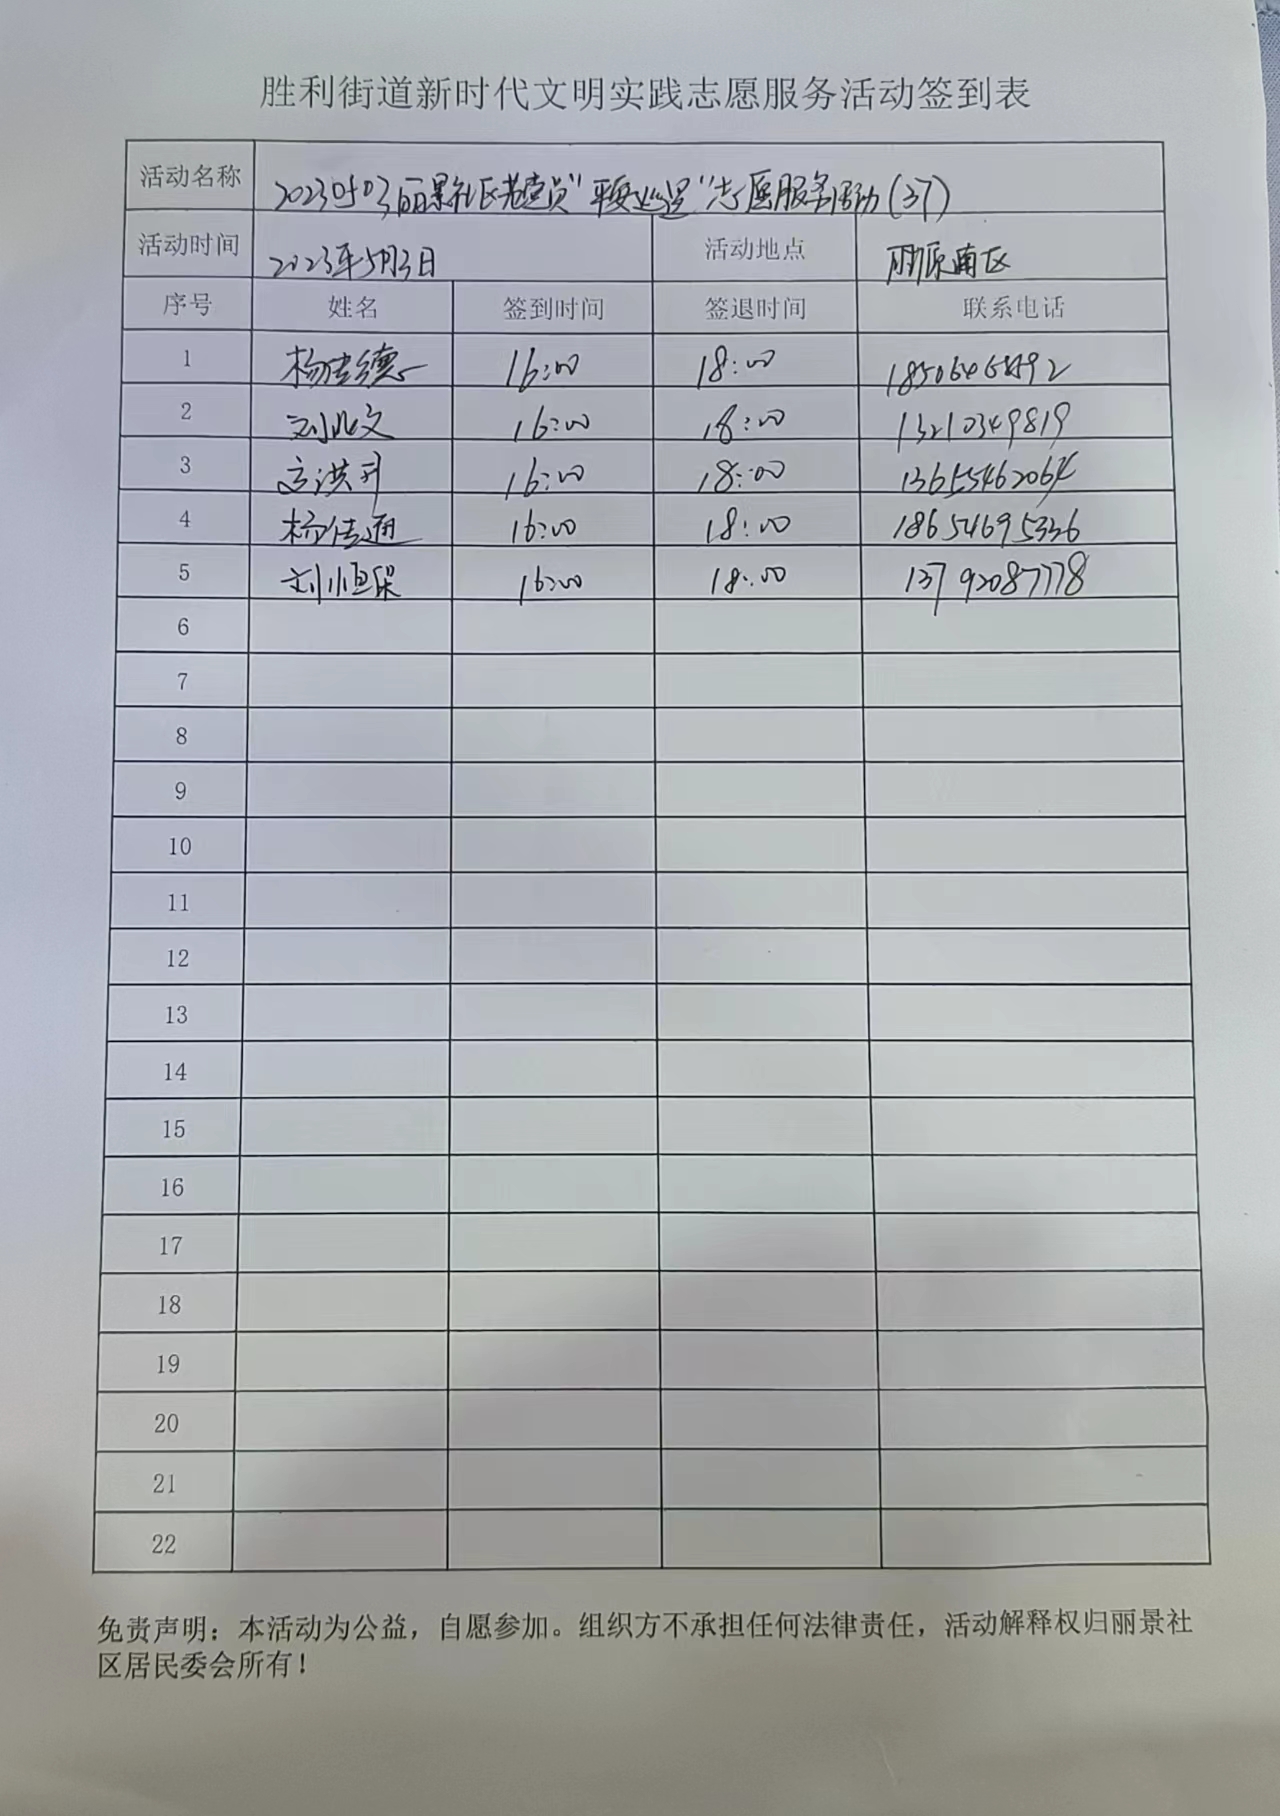 胜利街道新时代文明实践志愿服务活动签到表
活动名称 20230503丽景社区老党员“平安巡逻”志愿服务活动(37)
活动时间 2023年5月3日 活动地点 丽源南区
序号 姓名 签到时间 签退时间 联系电话
1 杨传德 16:00 18:00
2 刘兆文 16:00 18:00 13210349819
3 洪 16:00 18:00 13655462064
4 杨传通 16:00 18:00 18654695336
5 刘恒保 16:00 18:00 13792087778
6
7
8
9
10
11
12
13
14
15
16
17
18
19
20
21
22
免责声明：本活动为公益，自愿参加。组织方不承担任何法律责任，活动解释权归丽景社
区居民委会所有！